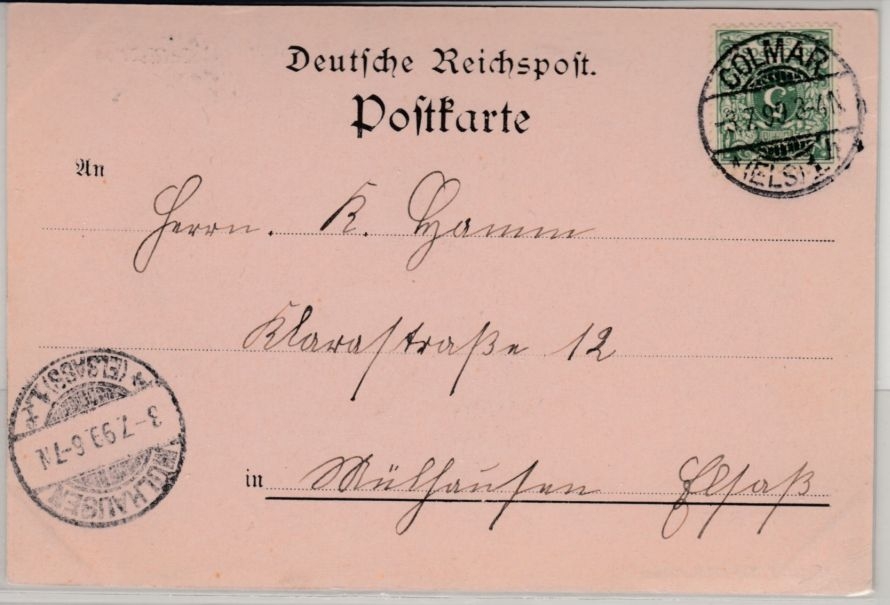 Deutsche Reichspost.
Postkarte
An
Herrn. K. Hamm
Klarastraße 12
in Mülhausen Elsaß
COLMAR
3.7.99. 3-4N
(ELS) 1.
5
MÜLHAUSEN
3-7.99. 6-7N
(ELSASS) 1.